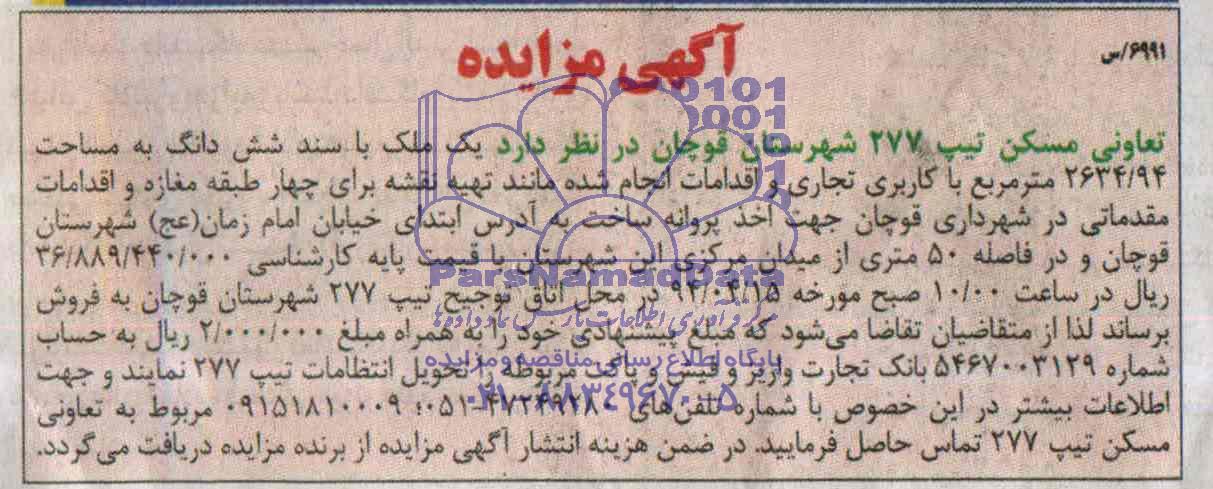 ۶۹۹۱/س
آگهی مزایده
تعاونی مسکن تیپ ۲۷۷ شهرستان قوچان در نظر دارد یک ملک با سند شش دانگ به مساحت
۲۶۳۴/۹۴ مترمربع با کاربری تجاری و اقدامات انجام شده مانند تهیه نقشه برای چهار طبقه مغازه و اقدامات
مقدماتی در شهرداری قوچان جهت اخذ پروانه ساخت به آدرس ابتدای خیابان امام زمان(عج) شهرستان
قوچان و در فاصله ۵۰ متری از میدان مرکزی این شهرستان با قیمت پایه کارشناسی ۳۶/۸۸۹/۴۴۰/۰۰۰
ریال در ساعت ۱۰/۰۰ صبح مورخه ۹۴/۰۴/۱۵ در محل اتاق توجیح تیپ ۲۷۷ شهرستان قوچان به فروش
برساند لذا از متقاضیان تقاضا می‌شود که مبلغ پیشنهادی خود را به همراه مبلغ ۲/۰۰۰/۰۰۰ ریال به حساب
شماره ۵۴۶۷۰۰۳۱۲۹ بانک تجارت واریز و فیش و پاکت مربوطه را تحویل انتظامات تیپ ۲۷۷ نمایند و جهت
اطلاعات بیشتر در این خصوص با شماره تلفن‌های ۰۵۱ ؛ ۰۹۱۵۱۸۱۰۰۰۹ مربوط به تعاونی
مسکن تیپ ۲۷۷ تماس حاصل فرمایید. در ضمن هزینه انتشار آگهی مزایده از برنده مزایده دریافت می‌گردد.
0101
0001
ParsNamadData
مرکز فرآوری اطلاعات پارس نماد داده‌ها
پایگاه اطلاع رسانی مناقصه و مزایده
۰۲۱-۸۸۳۴۹۶۷۰-۵